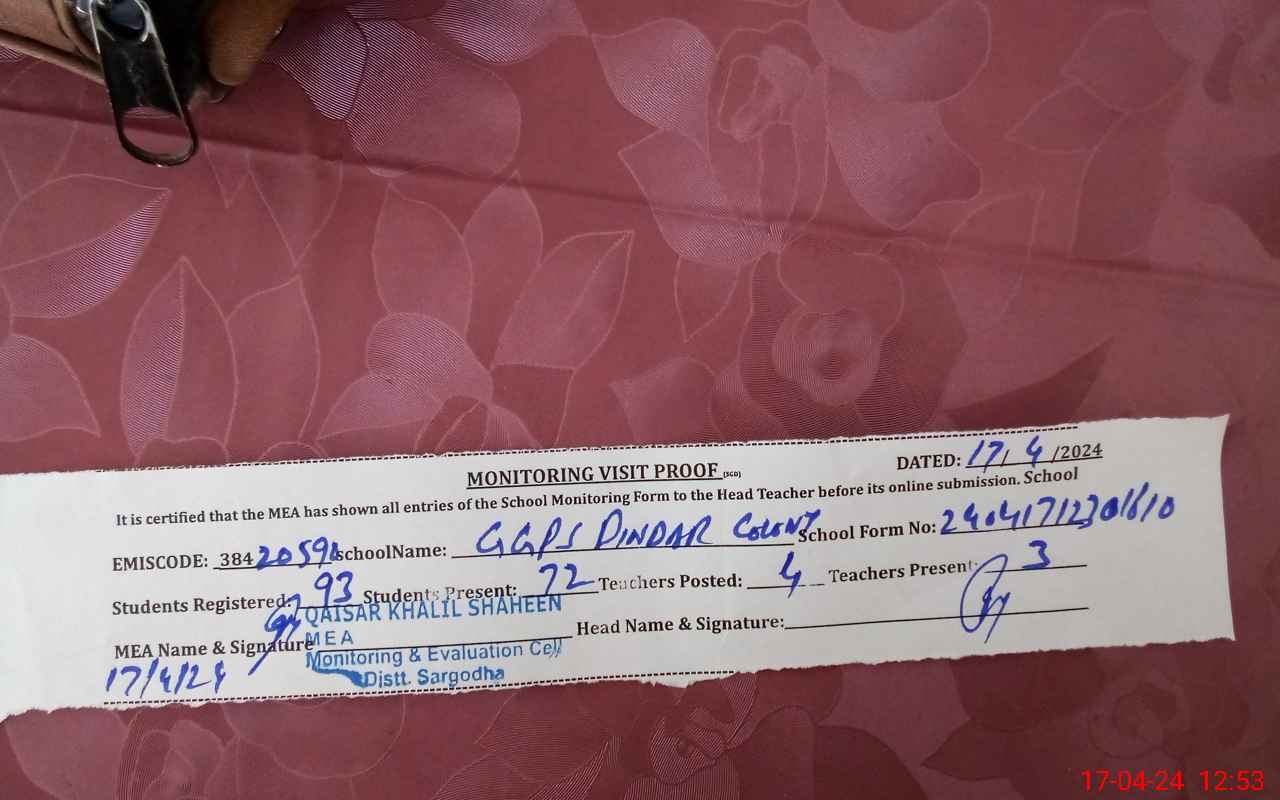 MONITORING VISIT PROOF (SGD)
DATED: 17/ 4 /2024
It is certified that the MEA has shown all entries of the School Monitoring Form to the Head Teacher before its online submission. School
EMISCODE: 384 schoolName: GGPS DINDAR COLONY School Form No:
Students Registered: 93 Students Present: 72 Teachers Posted: 4 Teachers Present: 3
MEA Name & Signature Head Name & Signature:
QAISAR KHALIL SHAHEEN
MEA
Monitoring & Evaluation Cell
Distt. Sargodha
17/4/24
17-04-24 12:53